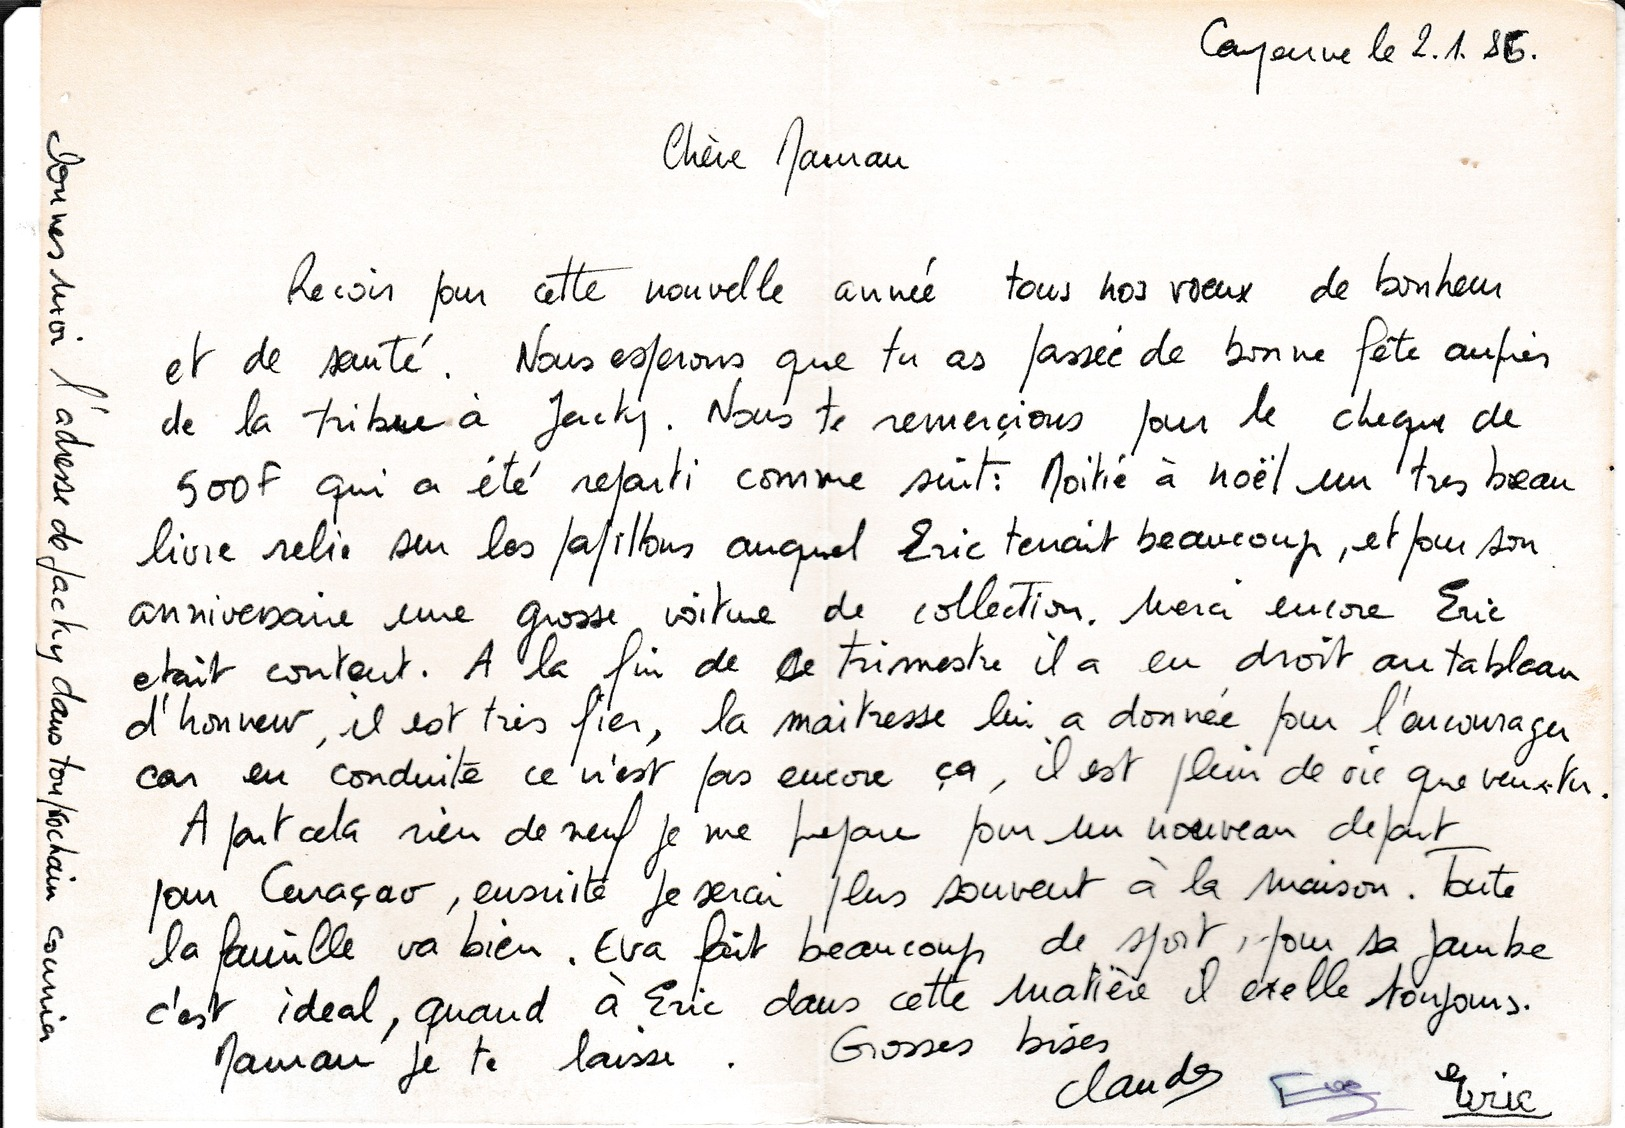 Cayenne le 2.1.86.
Chère Maman
Recois pour cette nouvelle année tous nos voeux de bonheur
et de santé. Nous esperons que tu as passée de bonne fête auprès
de la tribue à Jacky. Nous te remerçions pour le cheque de
500F qui a été reparti comme suit: Moitié à noël un tres beau
livre relié sur les papillons auquel Eric tenait beaucoup, et pour son
anniversaire une grosse voiture de collection. Merci encore Eric
etait content. A la fin de ce trimestre il a eu droit au tableau
d'honneur, il est très fier, la maitresse lui a donnée pour l'encourager
car en conduite ce n'est pas encore ça, il est plein de vie que veux-tu.
A part cela rien de neuf je me prepare pour un nouveau depart
pour Curaçao, ensuite je serai plus souvent à la maison. Toute
la famille va bien. Eva fait beaucoup de sport, pour sa jambe
c'est ideal, quand à Eric dans cette matière il exelle toujours.
Maman je te laisse. Grosses bises
Claude Eva Eric
donnes moi l'adresse de Jacky dans ton prochain courrier